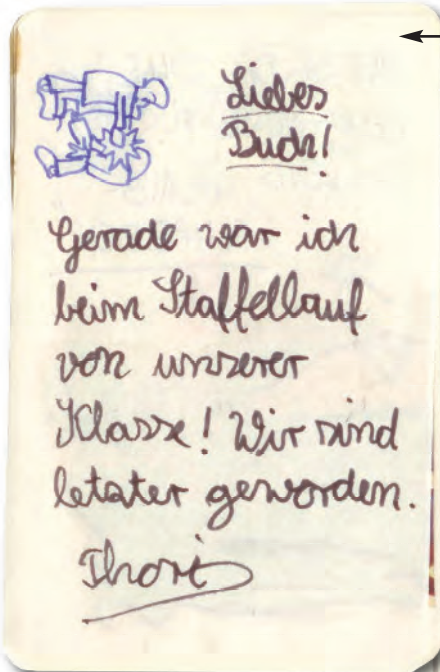 Liebes
Buch!
Gerade war ich
beim Staffellauf
von unserer
Klasse! Wir sind
letzter geworden.
Thori